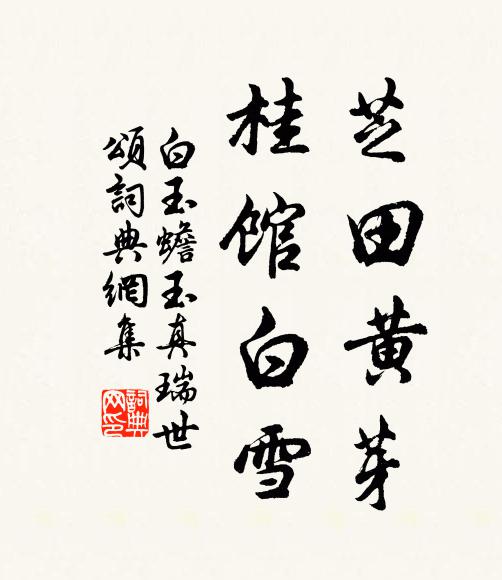 芝田黄芽
桂館白雪
白玉蟾玉真瑞世
頌詞典網集
詞典網印